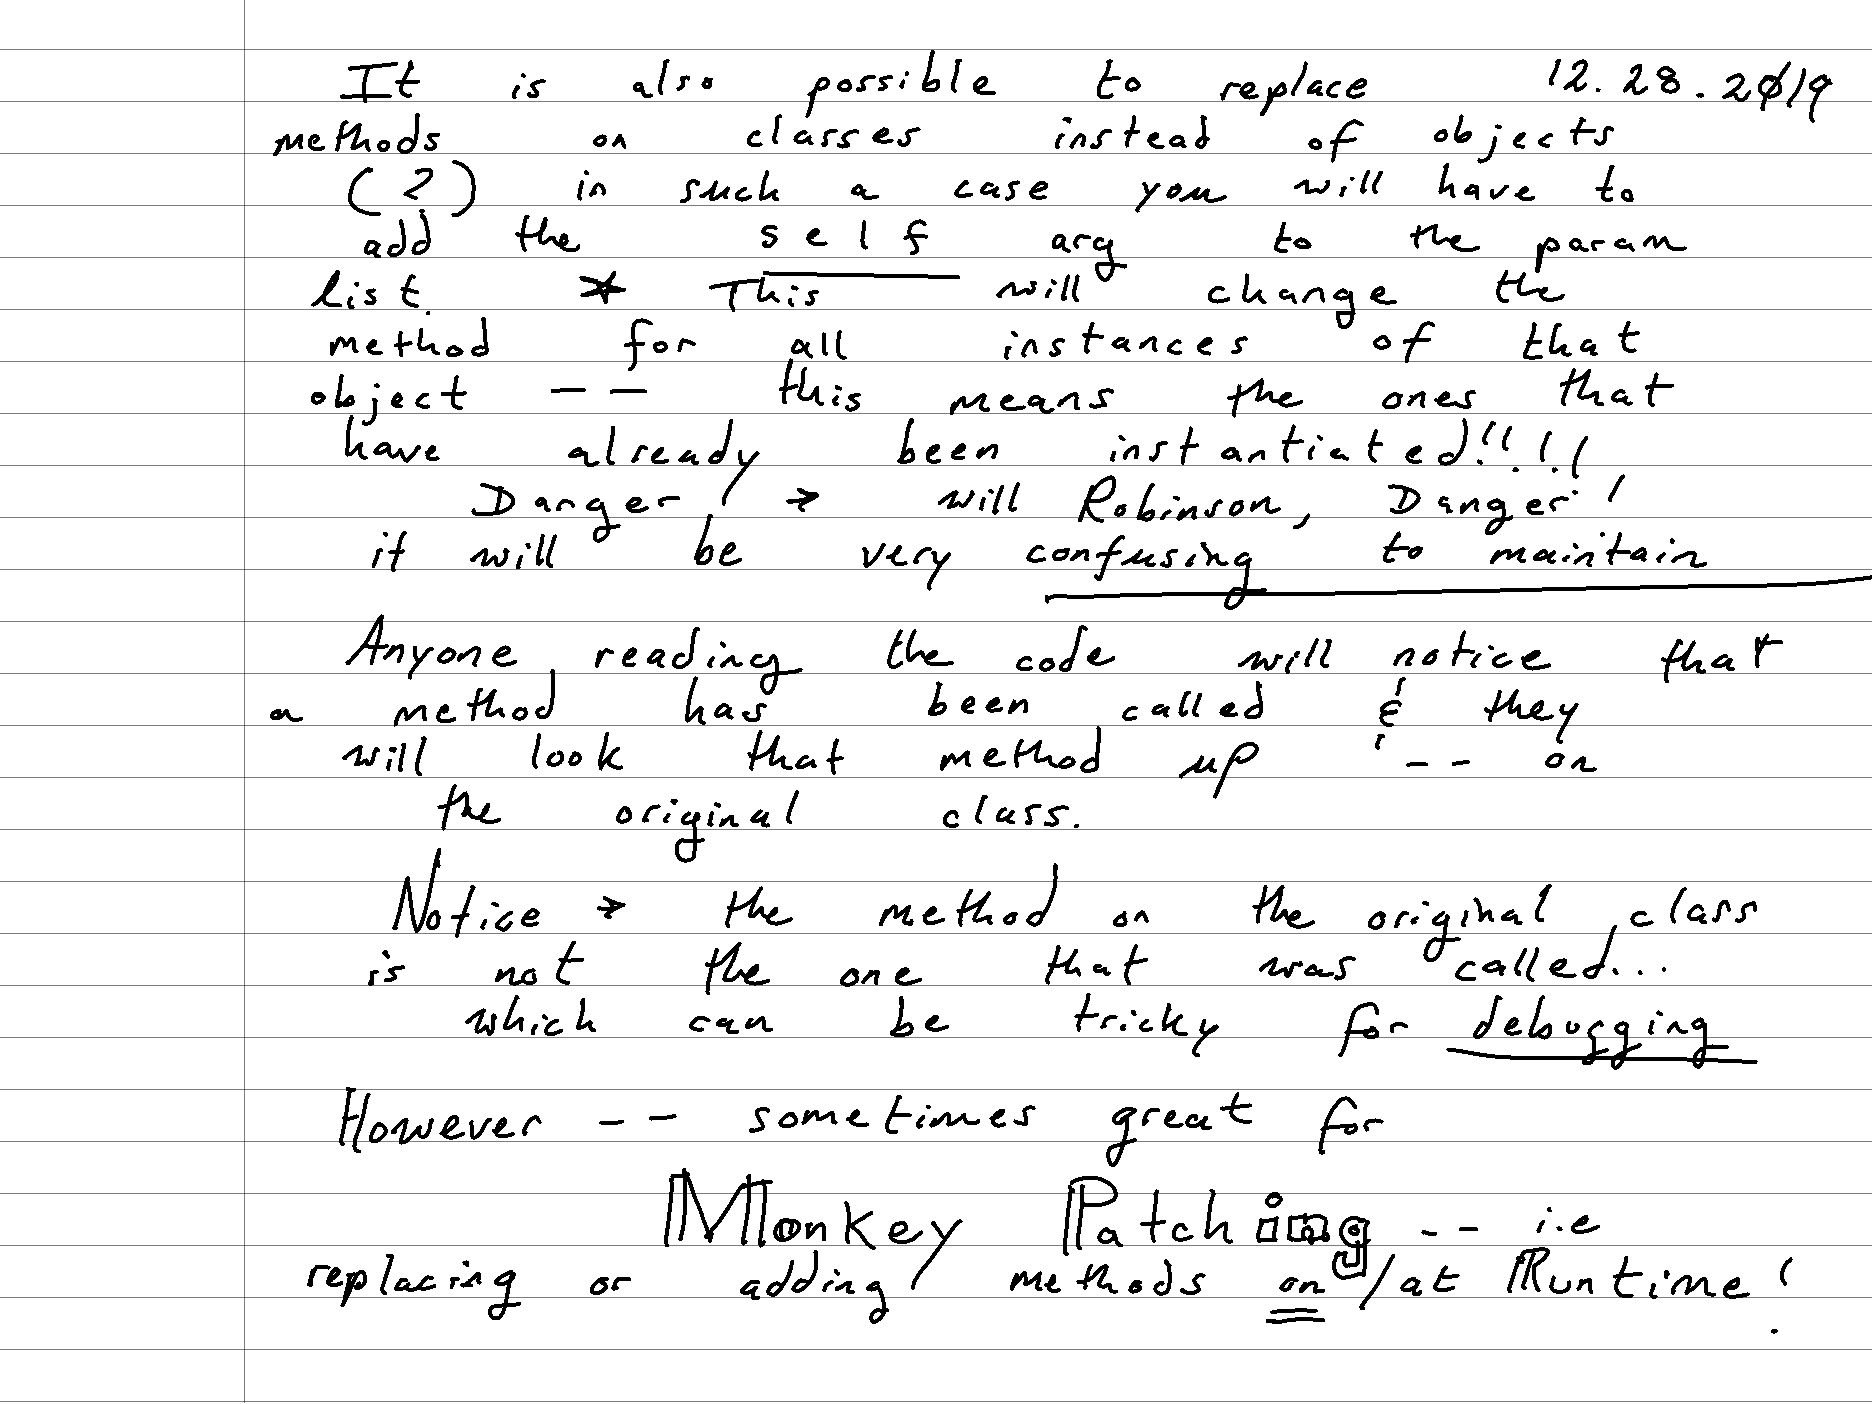 It is also possible to replace 12.28.2019
methods on classes instead of objects
(2) in such a case you will have to
add the self arg to the param
list. * This will change the
method for all instances of that
object -- this means the ones that
have already been instantiated!!!!
Danger! → will Robinson, Danger!
it will be very confusing to maintain
Anyone reading the code will notice that
a method has been called & they
will look that method up -- on
the original class.
Notice → the method on the original class
is not the one that was called...
which can be tricky for debugging
However -- sometimes great for
Monkey Patching -- i.e
replacing or adding methods on/at Runtime!